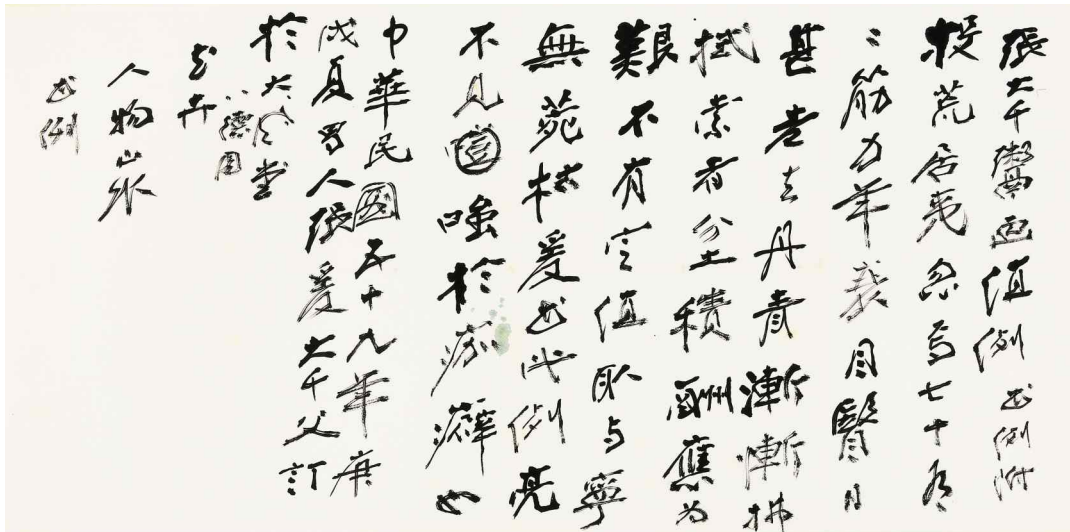 張大千鬻畫值例 書例附
投荒居夷忽焉七十有
二筋力年衰目翳日
甚老去丹青漸慚拂
拭索者坌土積酬應為
艱不有定值取与寧
無菀枯爰書此例亮
不見嗤於痂癖也
中華民國五十九年庚
戌夏蜀人張爰大千父訂
於大風堂
八德園
花卉
人物山水
書例